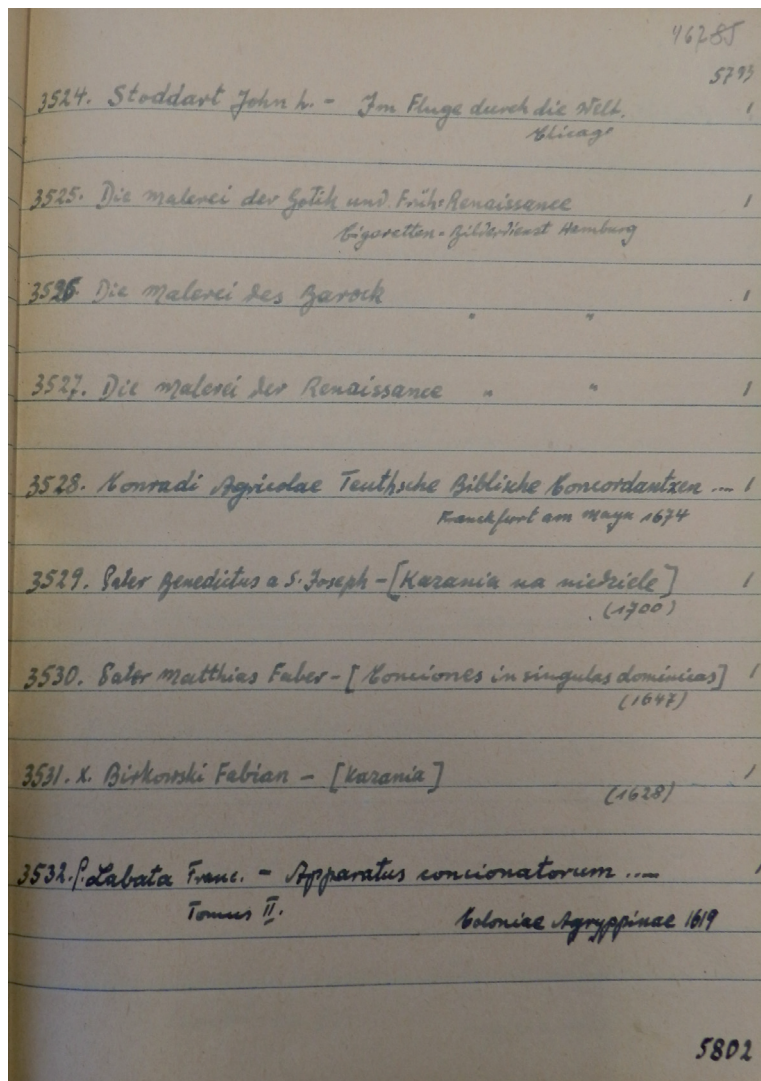 46785
5793
3524. Stoddart John L. - Im Fluge durch die Welt. 1
Chicago
3525. Die Malerei der Gotik und Früh-Renaissance 1
Cigaretten-Bilderdienst Hamburg
3526. Die Malerei des Barock 1
" "
3527. Die Malerei der Renaissance " " 1
3528. Konradi Agricolae Teuthsche Biblische Concordantzen .... 1
Franckfurt am Mayn 1674
3529. Pater Benedictus a S. Joseph - [Kazania na niedziele] 1
(1700)
3530. Pater Matthias Faber - [Conciones in singulas dominicas] 1
(1647)
3531. X. Birkowski Fabian - [Kazania] 1
(1628)
3532. P. Labata Franc. - Apparatus concionatorum .... 1
Tomus II. Coloniae Agryppinae 1619
5802